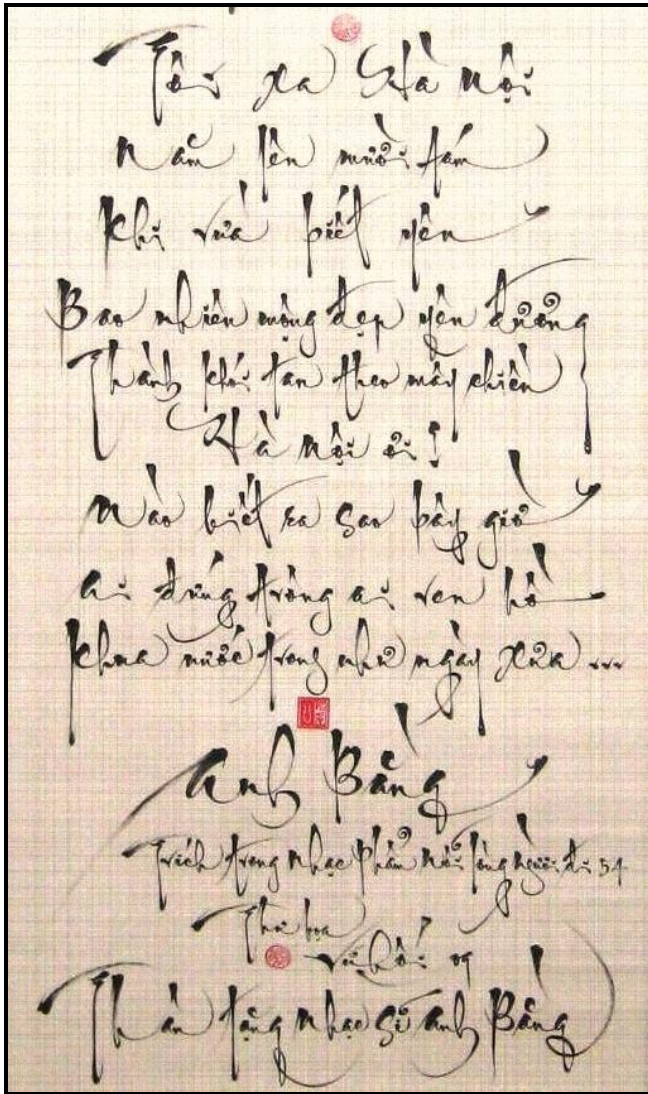 Tôi xa Hà Nội
Năm lên mười tám
Khi vừa biết yêu
Bao nhiêu mộng đẹp yêu đương
Thành khói tan theo mây chiều
Hà Nội ơi!
Nào biết ra sao bây giờ
Ai đứng trông ai ven hồ
Khua nước trong như ngày xưa ...
Anh Bằng
Trích trong nhạc phẩm nỗi lòng người đi 54
Thư họa
Vũ Hối 09
Thân tặng nhạc sĩ Anh Bằng